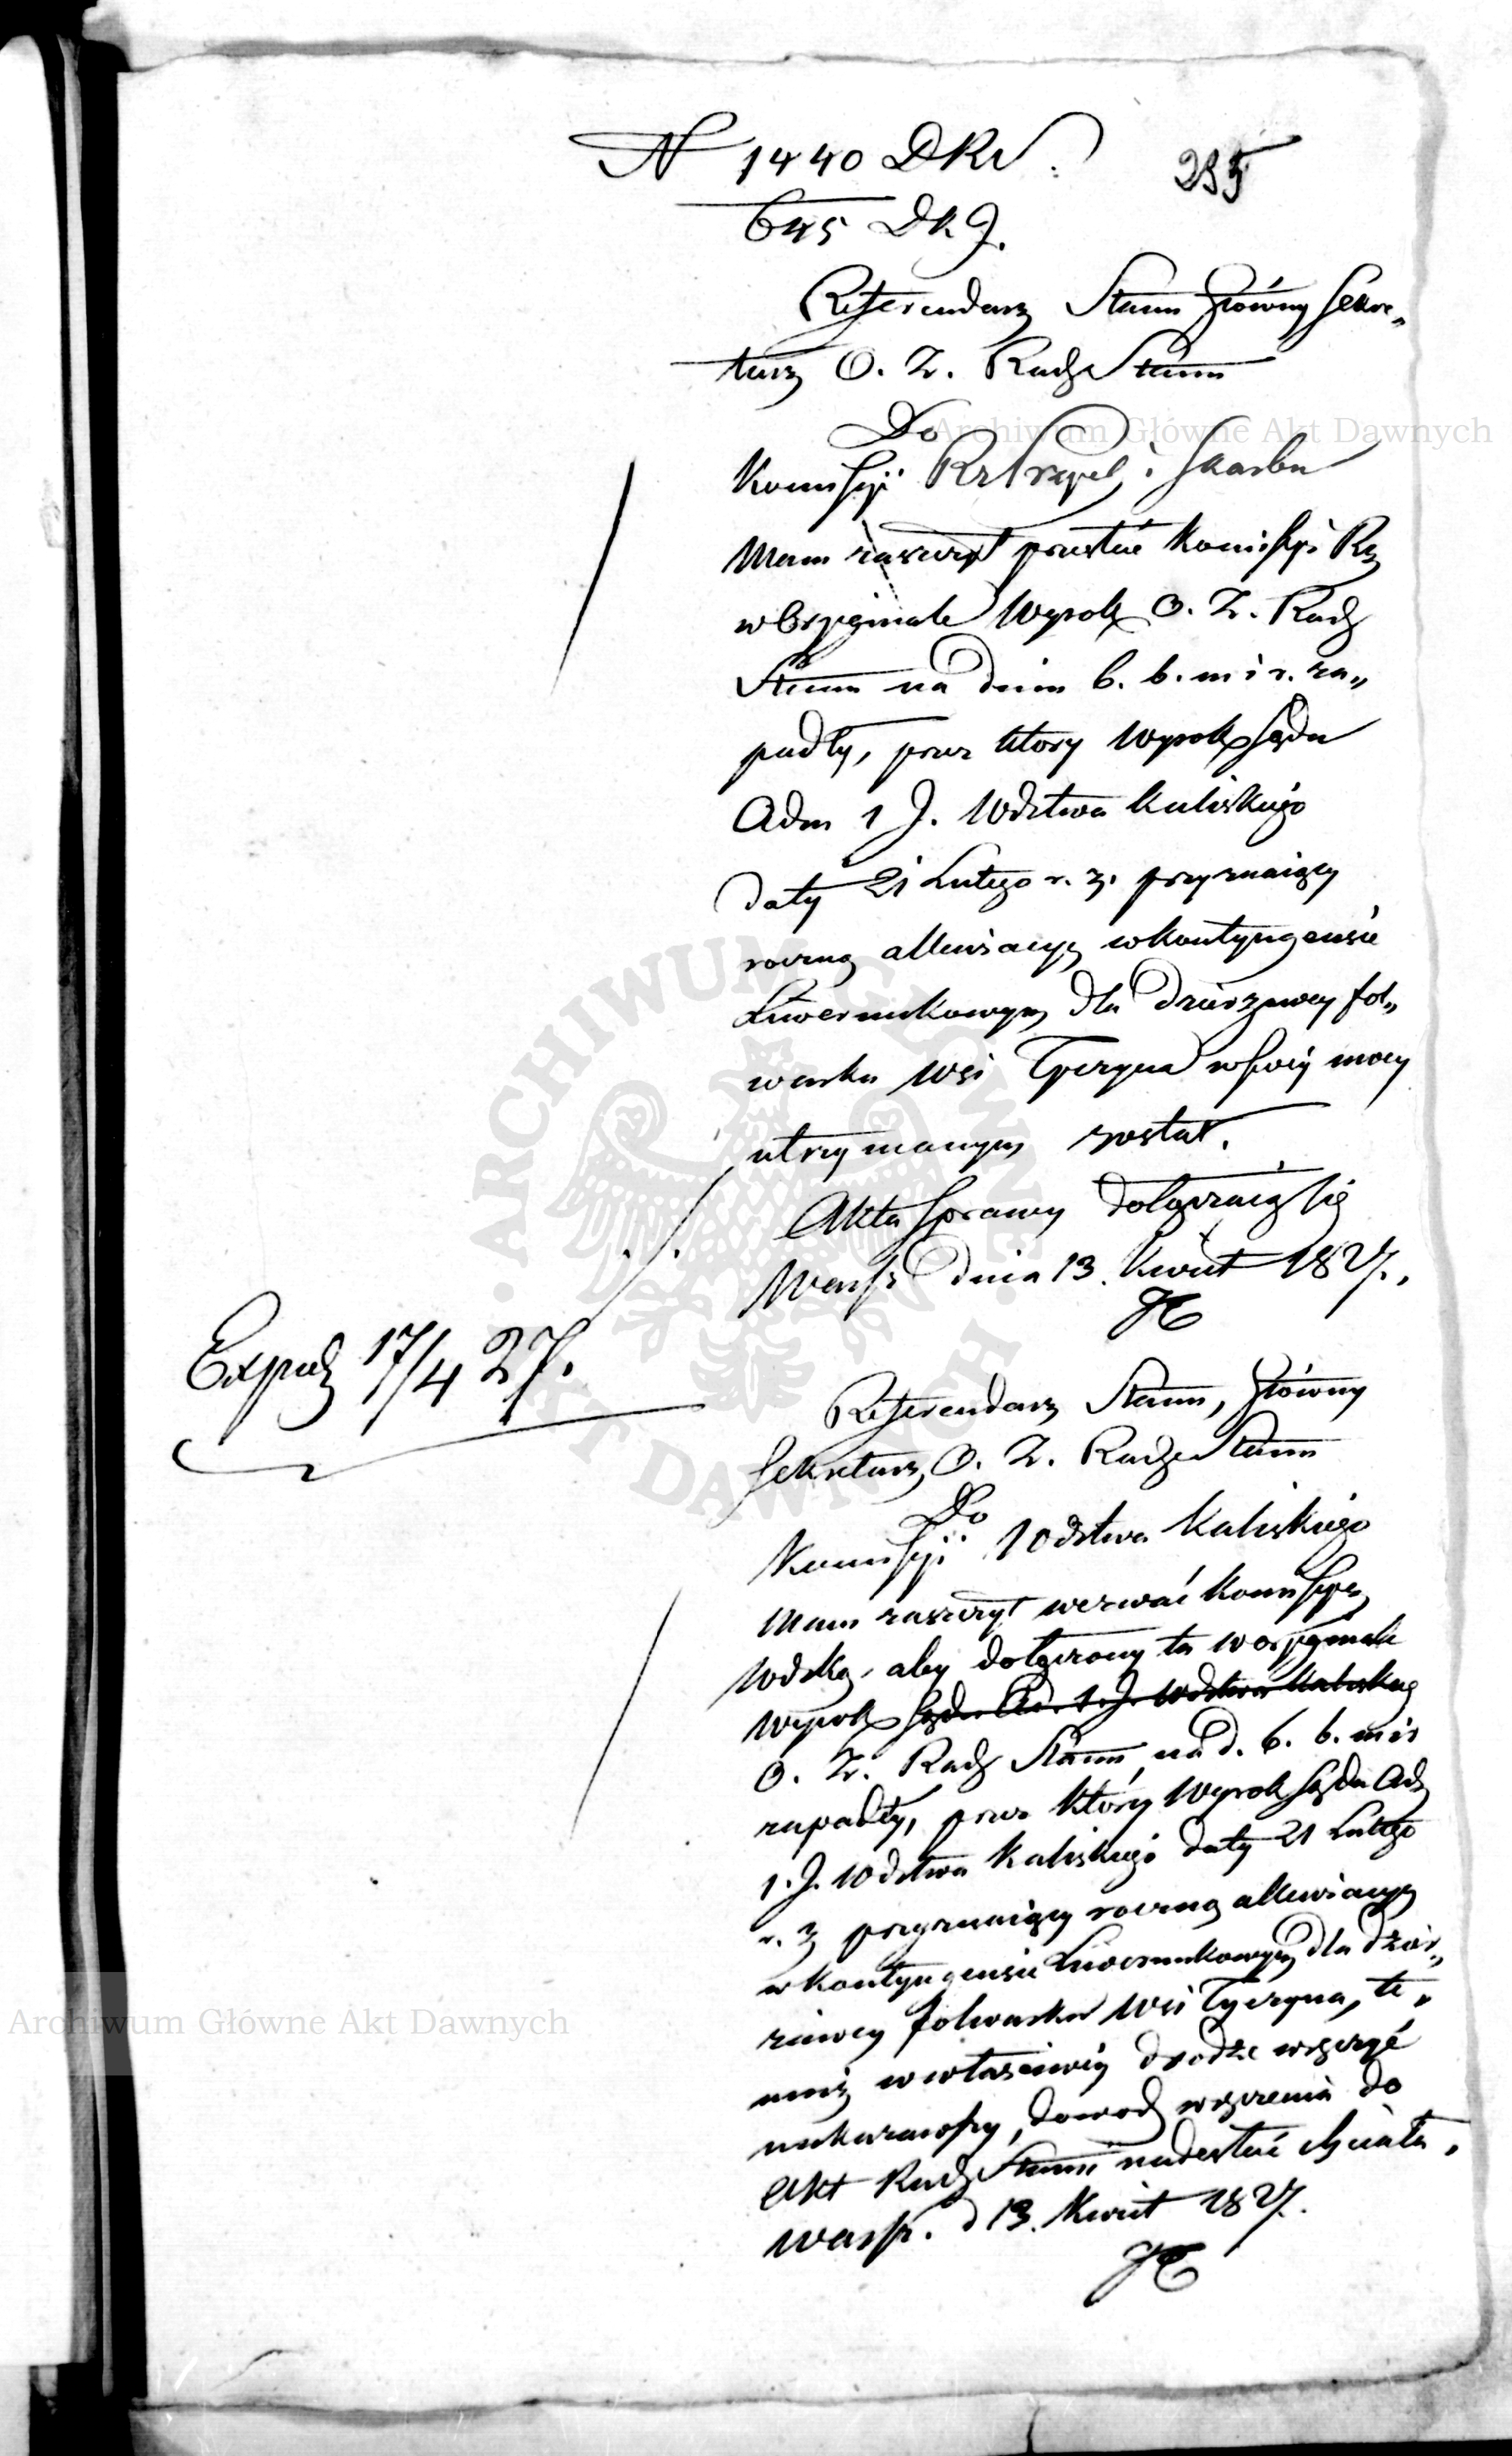 N 1440 DKN.
235
645 DKJ.
Referendarz Stanu Główny Sekre„
tarz O. Z. Rady Stanu
Do
Kommissyi Rz Przych i Skarbu
Mam zaszczyt przesłać Komissyi Rz
w Oryginale Wyrok O. Z. Rady
Stanu na dniu 6. b. m i r. za„
padły, przez który Wyrok Sądu
Adm 1 J. Wdztwa Kaliskiego
daty 21 Lutego r. z. przyznaiący
roczną allewiacyę w kontyngensie
Liwerunkowym dla dzierżawcy fol„
warku Wsi Tyczyna w swéy mocy
utrzymanym został.
Akta sprawy dołączaią się
Warsz dnia 13. Kwiet 1827.
Exped 17/4 27.
Referendarz Stanu, Główny
Sekretarz O. Z. Rady Stanu
Do
Kommissyi Wdztwa Kaliskiego
Mam zaszczyt wezwać Kommissyę
Wdzką, aby dołączony tu w oryginale
Wyrok Sądu Ad. 1. J. Wdztwa Kaliskieg
O. Z. Rady Stanu, na d. 6. b. m i r
zapadły, przez który Wyrok Sądu Ad
1. J. Wdztwa Kaliskiego daty 21 Lutego
r. z przyznaiący roczną allewiacyę
w kontyngensie Liwerunkowym dla dzier„
żawcy folwarku Wsi Tyczyna, te„
muż w właściwéy drodze wręczyć
nakazawszy, dowod wręczenia do
Akt Rady Stanu nadesłać chciała.
Warsz. d 13. Kwiet 1827.
Archiwum Główne Akt Dawnych
Archiwum Główne Akt Dawnych
ARCHIWUM GŁÓWNE AKT DAWNYCH